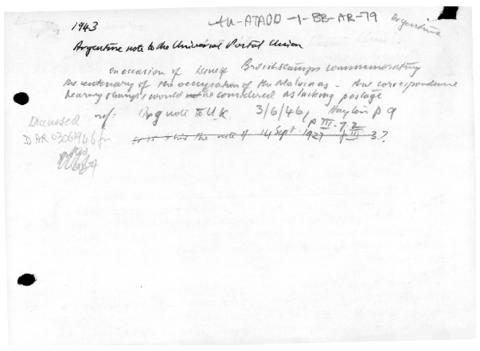 1943
AU-ATADD-1-BB-AR-79
Argentina
Argentine note to the Universal Postal Union
on occasion of issue of British stamps commemorating
the centenary of the occupation of the Malvinas - that correspondence
bearing stamps would be considered as lacking postage
ref: Arg note to UK 3/6/46, p 9
Discussed
DAR03061946
p III. 7.2
is this the note of 14 Sept 1927 III 3?